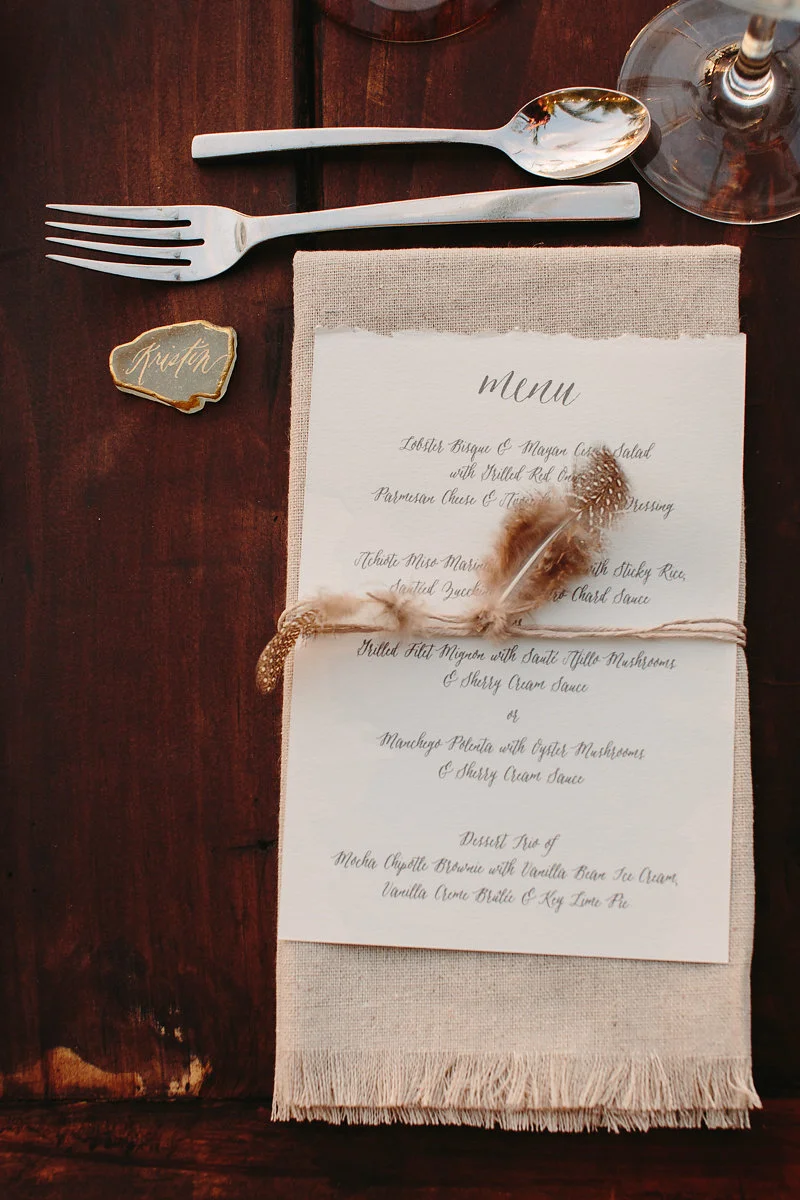 Kristin
menu
Lobster Bisque & Mayan Salad
with Grilled Red
Parmesan Cheese & Dressing
Achiote Miso with Sticky Rice,
Sautéed Chard Sauce
Grilled Filet Mignon with Sauté Ajillo Mushrooms
& Sherry Cream Sauce
or
Manchego Polenta with Oyster Mushrooms
& Sherry Cream Sauce
Dessert Trio of
Mocha Chipotle Brownie with Vanilla Bean Ice Cream,
Vanilla Creme Brûlée & Key Lime Pie